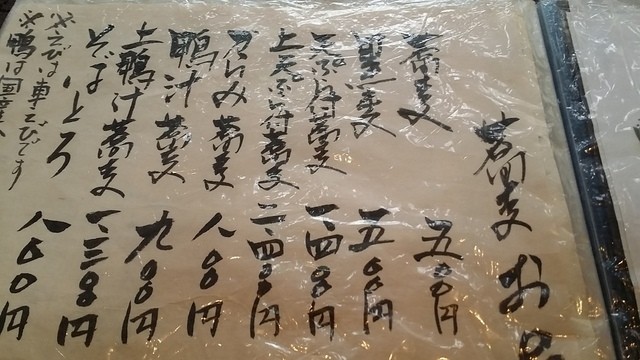 蕎麦 お
蕎麦 五〇〇円
五〇〇円
天ぷら付蕎麦 一、四〇〇円
上天ぷら付蕎麦 二、四〇〇円
からみ蕎麦 八〇〇円
鴨汁蕎麦 九〇〇円
上鴨汁蕎麦 一、三〇〇円
そばとろ 八〇〇円
※えびは車えびです
※鴨は国産